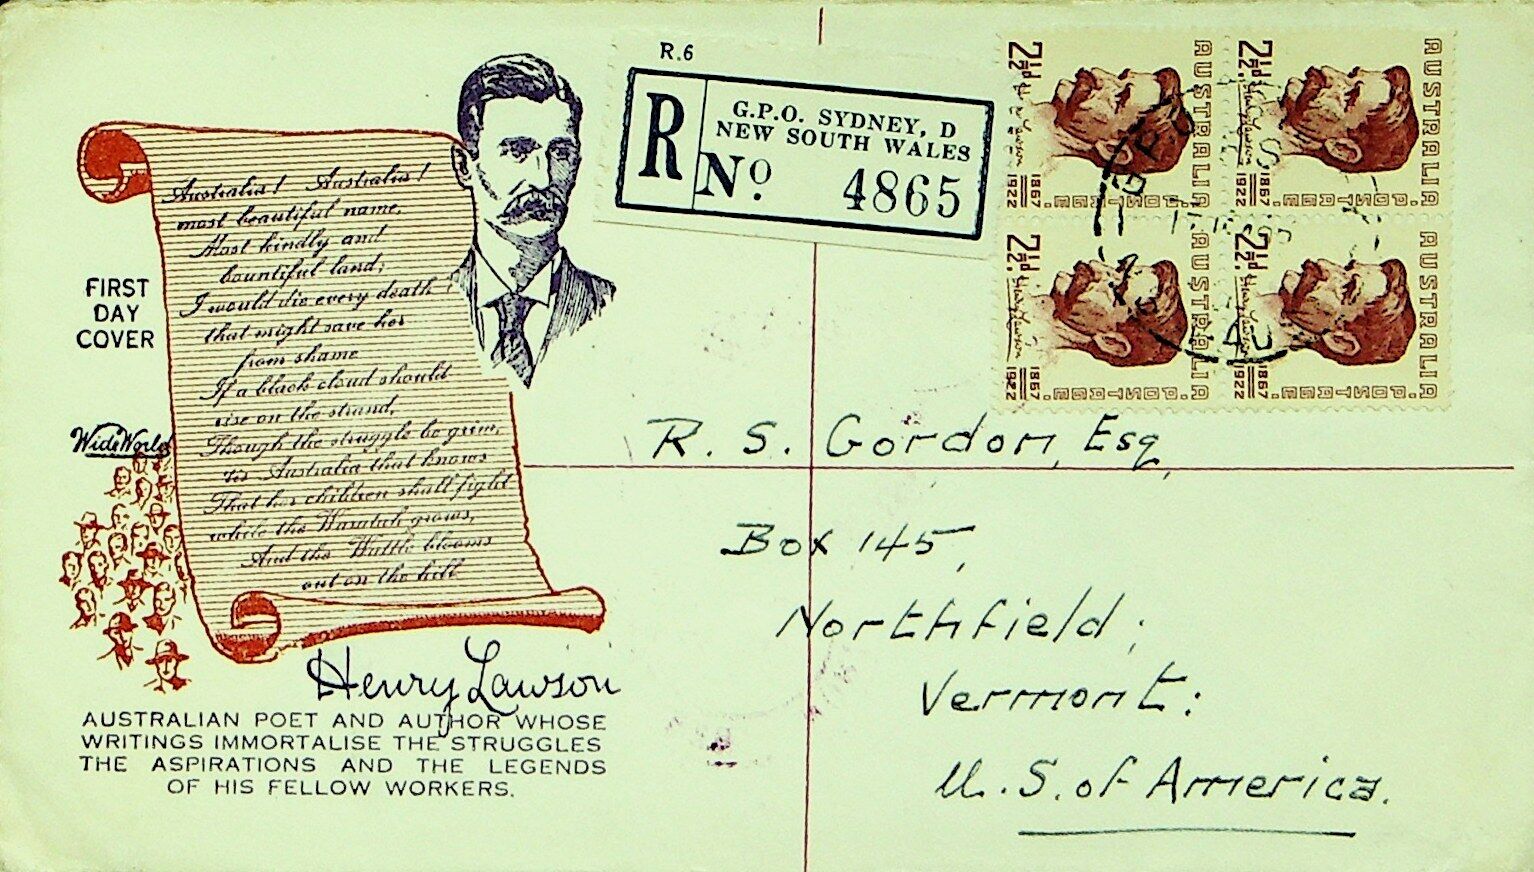 R.6
R
G.P.O. SYDNEY, D
NEW SOUTH WALES
No. 4865
AUSTRALIA
2½d.
Henry Lawson
1867
1922
POSTAGE.
AUSTRALIA
2½d.
Henry Lawson
1867
1922
POSTAGE.
AUSTRALIA
2½d.
Henry Lawson
1867
1922
POSTAGE.
AUSTRALIA
2½d.
Henry Lawson
1867
1922
POSTAGE.
Australia! Australia!
most beautiful name,
Most kindly and
bountiful land;
I would die every death
that might save her
from shame
If a black cloud should
rise on the strand,
Though the struggle be grim,
'tis Australia that knows
That her children shall fight
while the Waratah grows,
And the Wattle blooms
out on the hill
FIRST
DAY
COVER
WideWorld
Henry Lawson
AUSTRALIAN POET AND AUTHOR WHOSE
WRITINGS IMMORTALISE THE STRUGGLES
THE ASPIRATIONS AND THE LEGENDS
OF HIS FELLOW WORKERS.
R. S. Gordon, Esq,
Box 145,
Northfield,
Vermont:
U.S. of America.